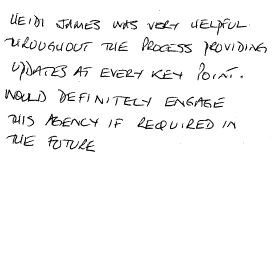 HEIDI JAMES WAS VERY HELPFUL
THROUGHOUT THE PROCESS PROVIDING
UPDATES AT EVERY KEY POINT.
WOULD DEFINITELY ENGAGE
THIS AGENCY IF REQUIRED IN
THE FUTURE